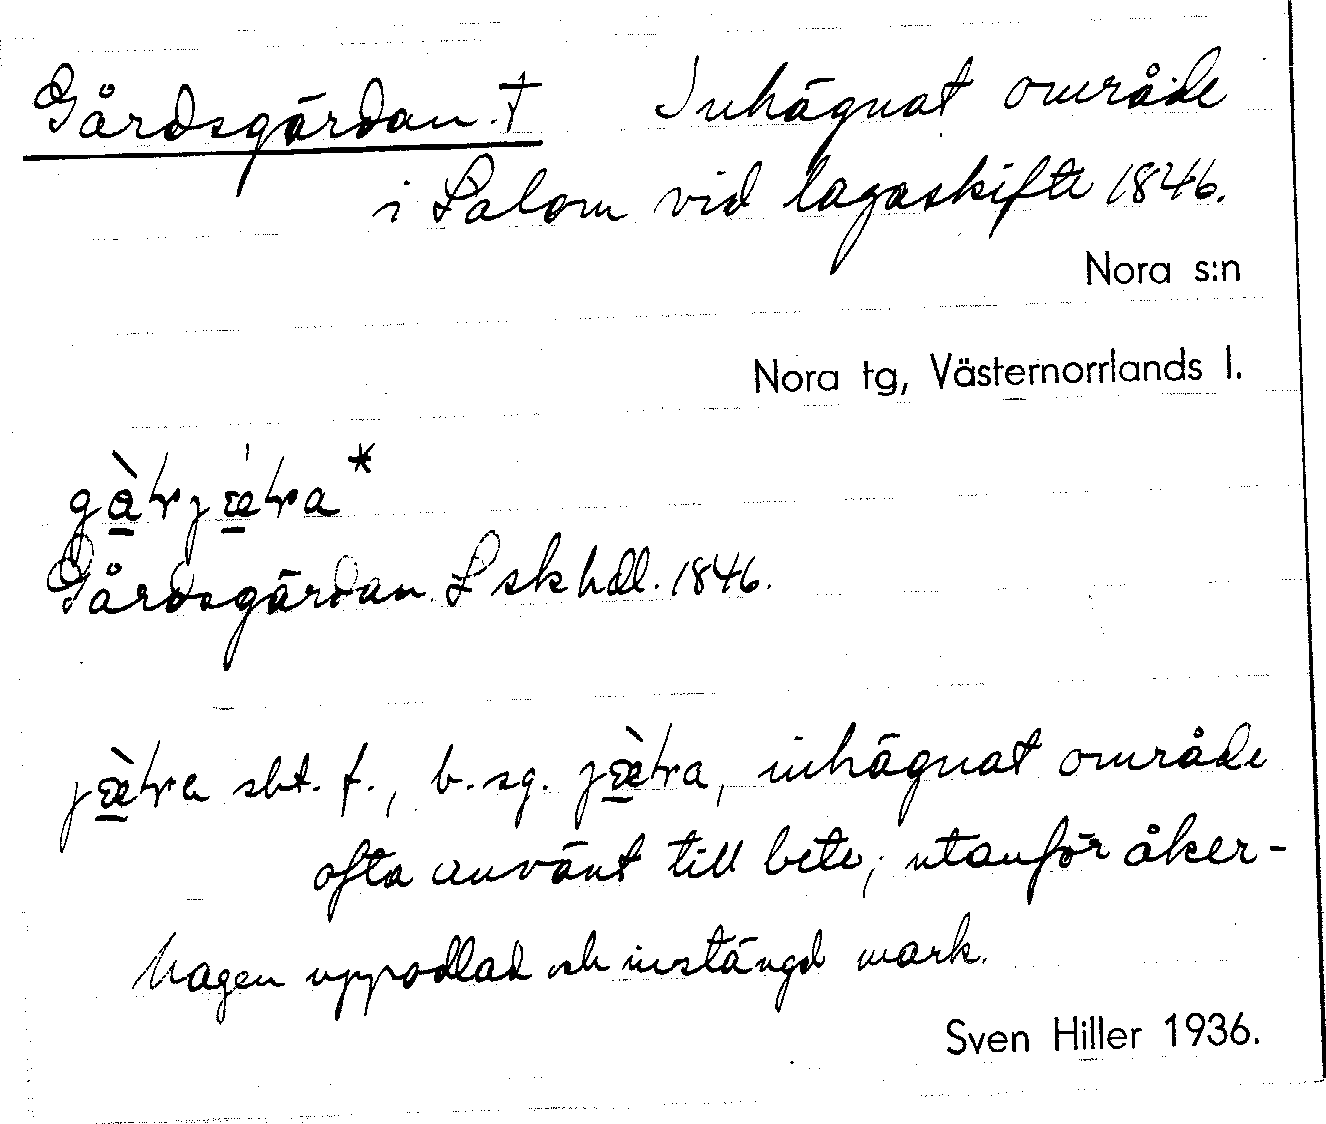 Gårdsgärdan † Inhägnat område
i Salom vid lagaskifte 1846.
Nora s:n
Nora tg, Västernorrlands l.
Gårdsgärdan L sk hdl. 1846.
sbt. f., b. sg. inhägnat område
ofta använt till bete; utanför åker-
hagen uppodlad och instängd mark.
Sven Hiller 1936.